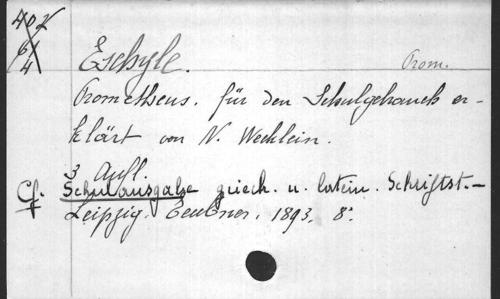 402
61
4
Eschyle. Prom.
Prometheus. für den Schulgebrauch er-
klärt von N. Wecklein.
3 Aufl.
Cf. Schulausgabe griech. u. latein. Schriftst.-
Leipzig. Teubner. 1893. 8°.